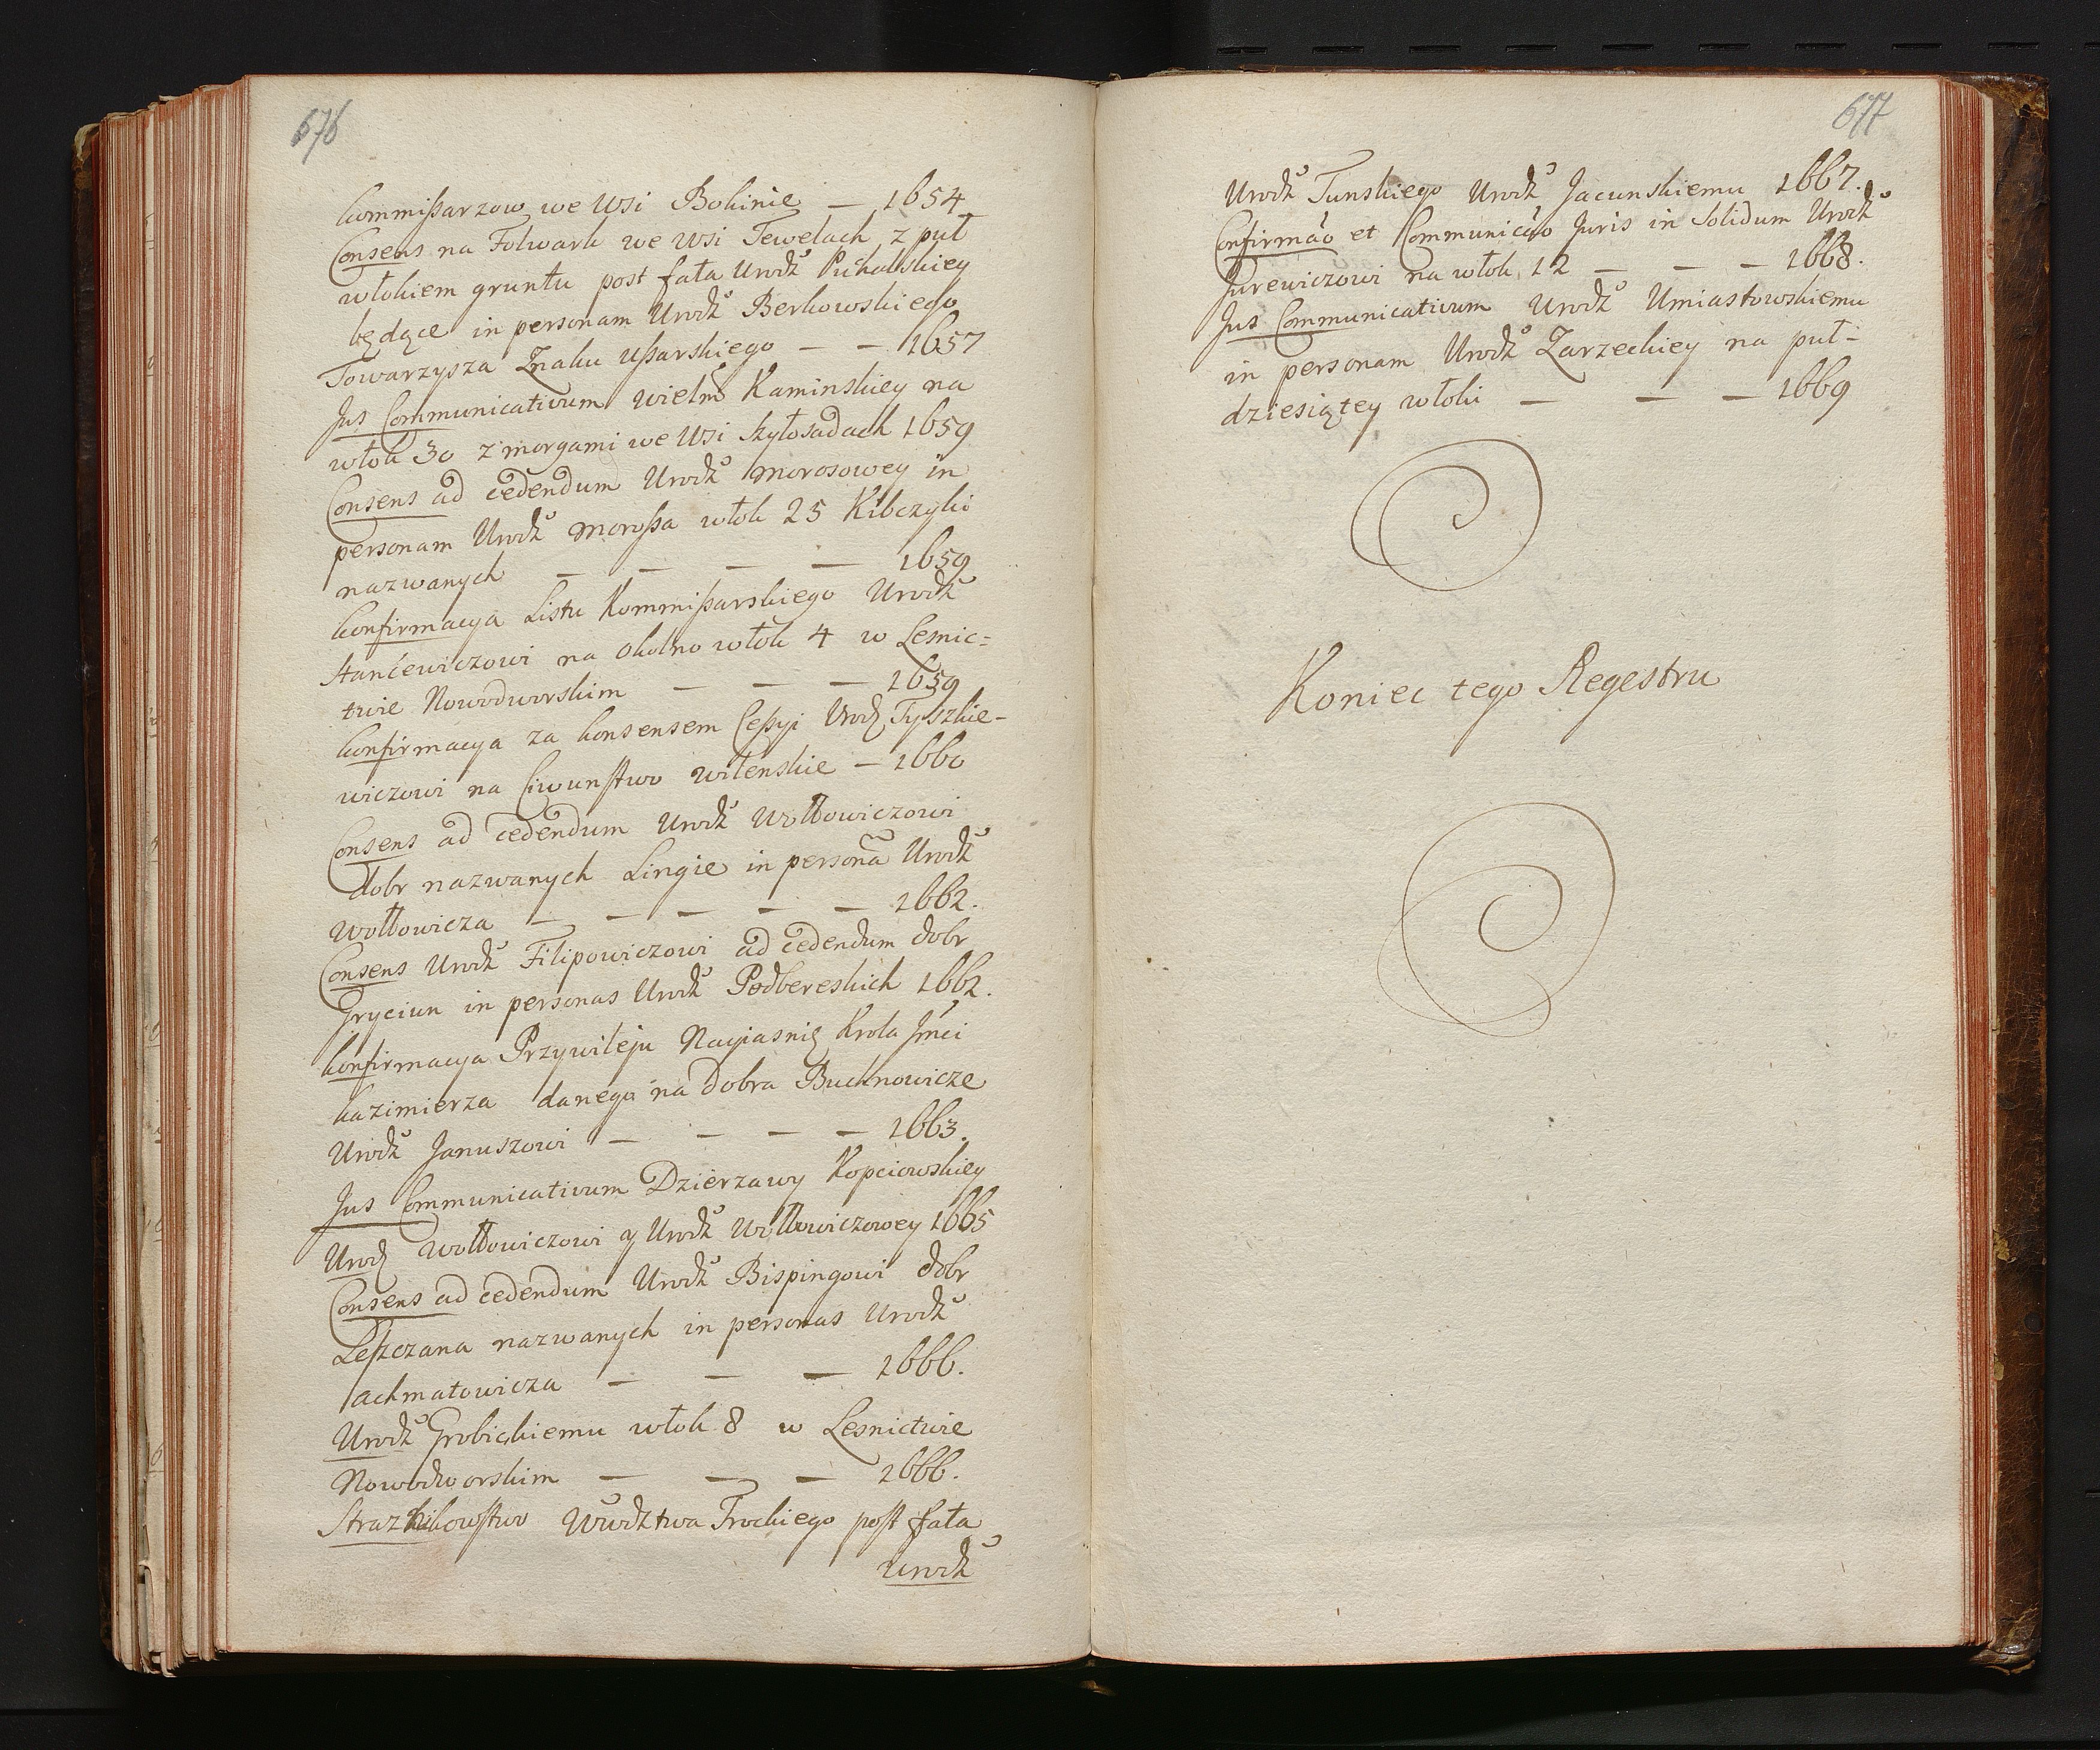 676
kommißarzow we Wsi Bokinie — 1654
Consens na Folwark we Wsi Tewelach z puł
włokiem gruntu post fata Urodź Puchalskiey
będące in personam Urodź Berkowskiego
Towarzysza Znaku Ußarskiego — — 1657
Jus Communicativum Wielm Kaminskiey na
włok 30 z morgami we Wsi Szyłosadach 1659
Consens ad cedendum Urodź Morosowey in
personam Urodź Moroßa włok 25 Kibczyki
nazwanych — — — — 1659
konfirmacya Listu Kommißarskiego Urodź
Stancewiczowi na okolno włok 4 w Lesnic=
twie Nowodworskim — — — 1659
konfirmacya za konsensem Ceßyi Urodz Tyszkie-
wiczowi na Ciwunstwo wilenskie — 1660
Consens ad cedendum Urodź Wołłowiczowi
dobr nazwanych Lingie in persona Urodź
Wołłowicza — — — — — 1662.
Consens Urodź Filipowiczowi ad cedendum dobr
Gryciun in personas Urodź Podbereskich 1662.
konfirmacya Przywileju Nayiasnię Krola Jmci
kazimierza danego na Dobra Buchnowicze
Urodź Januszowi — — — — 1663.
Jus Communicativum Dzierzawy Kopciowskiey
Urodz Wołłowiczowi y Urodź Wołłowiczowey 1665
Consens ad cedendum Urodź Bispingowi dobr
Leßczana nazwanych in personas Urodź
Achmatowicza — — — 1666.
Urodź Grobickiemu włok 8 w Lesnictwie
Nowodworskim — — — 1666.
Straznikowstwo Wwdztwa Trockiego post fata
Urodź
677
Urodź Tunskiego Urodź Jacunskiemu 1667.
Confirmao et Communicao Juris in Solidum Urodź
Jurewiczowi na włok 12 — — — 1668.
Jus Communicativum Urodź Umiastowskiemu
in personam Urodź Zarzeckiey na puł-
dziesiątey włoki — — — 1669
Koniec tego Regestru